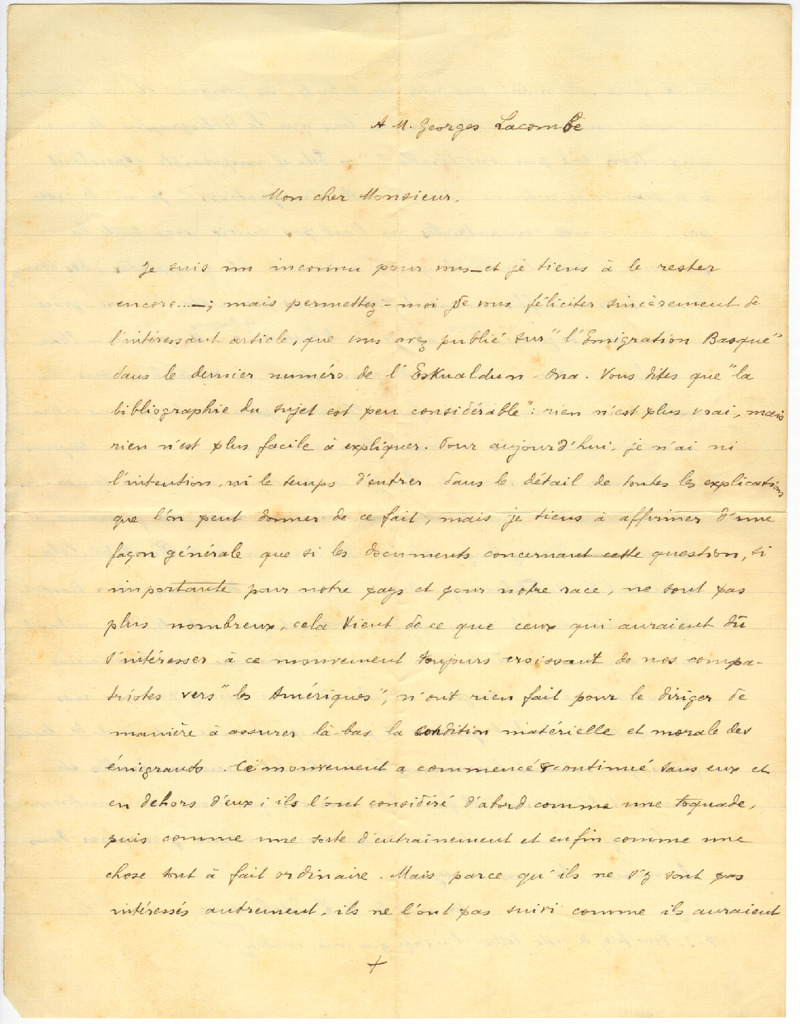 A M. Georges Lacombe
Mon cher Monsieur.
Je suis un inconnu pour vous – et je tiens à le rester
encore...–; mais permettez-moi de vous féliciter sincèrement de
l'intéressant article, que vous avez publié sur "l'Emigration Basque"
dans le dernier numéro de l'Eskualdun Ona. Vous dites que "la
bibliographie du sujet est peu considérable": rien n'est plus vrai, mais
rien n'est plus facile à expliquer. Pour aujourd'hui, je n'ai ni
l'intention, ni le temps d'entrer dans le détail de toutes les explications
que l'on peut donner de ce fait, mais je tiens à affirmer d'une
façon générale que si les documents concernant cette question, si
importante pour notre pays et pour notre race, ne sont pas
plus nombreux, cela vient de ce que ceux qui auraient dû
s'intéresser à ce mouvement toujours croissant de nos compa-
triotes vers "les Amériques", n'ont rien fait pour le diriger de
manière à assurer là-bas la condition matérielle et morale des
émigrants. Ce mouvement a commencé & continué sans eux et
en dehors d'eux; ils l'ont considéré d'abord comme une toquade,
puis comme une sorte d'entraînement et enfin comme une
chose tout à fait ordinaire. Mais parce qu'ils ne s'y sont pas
intéressés autrement, ils ne l'ont pas suivi comme ils auraient
+